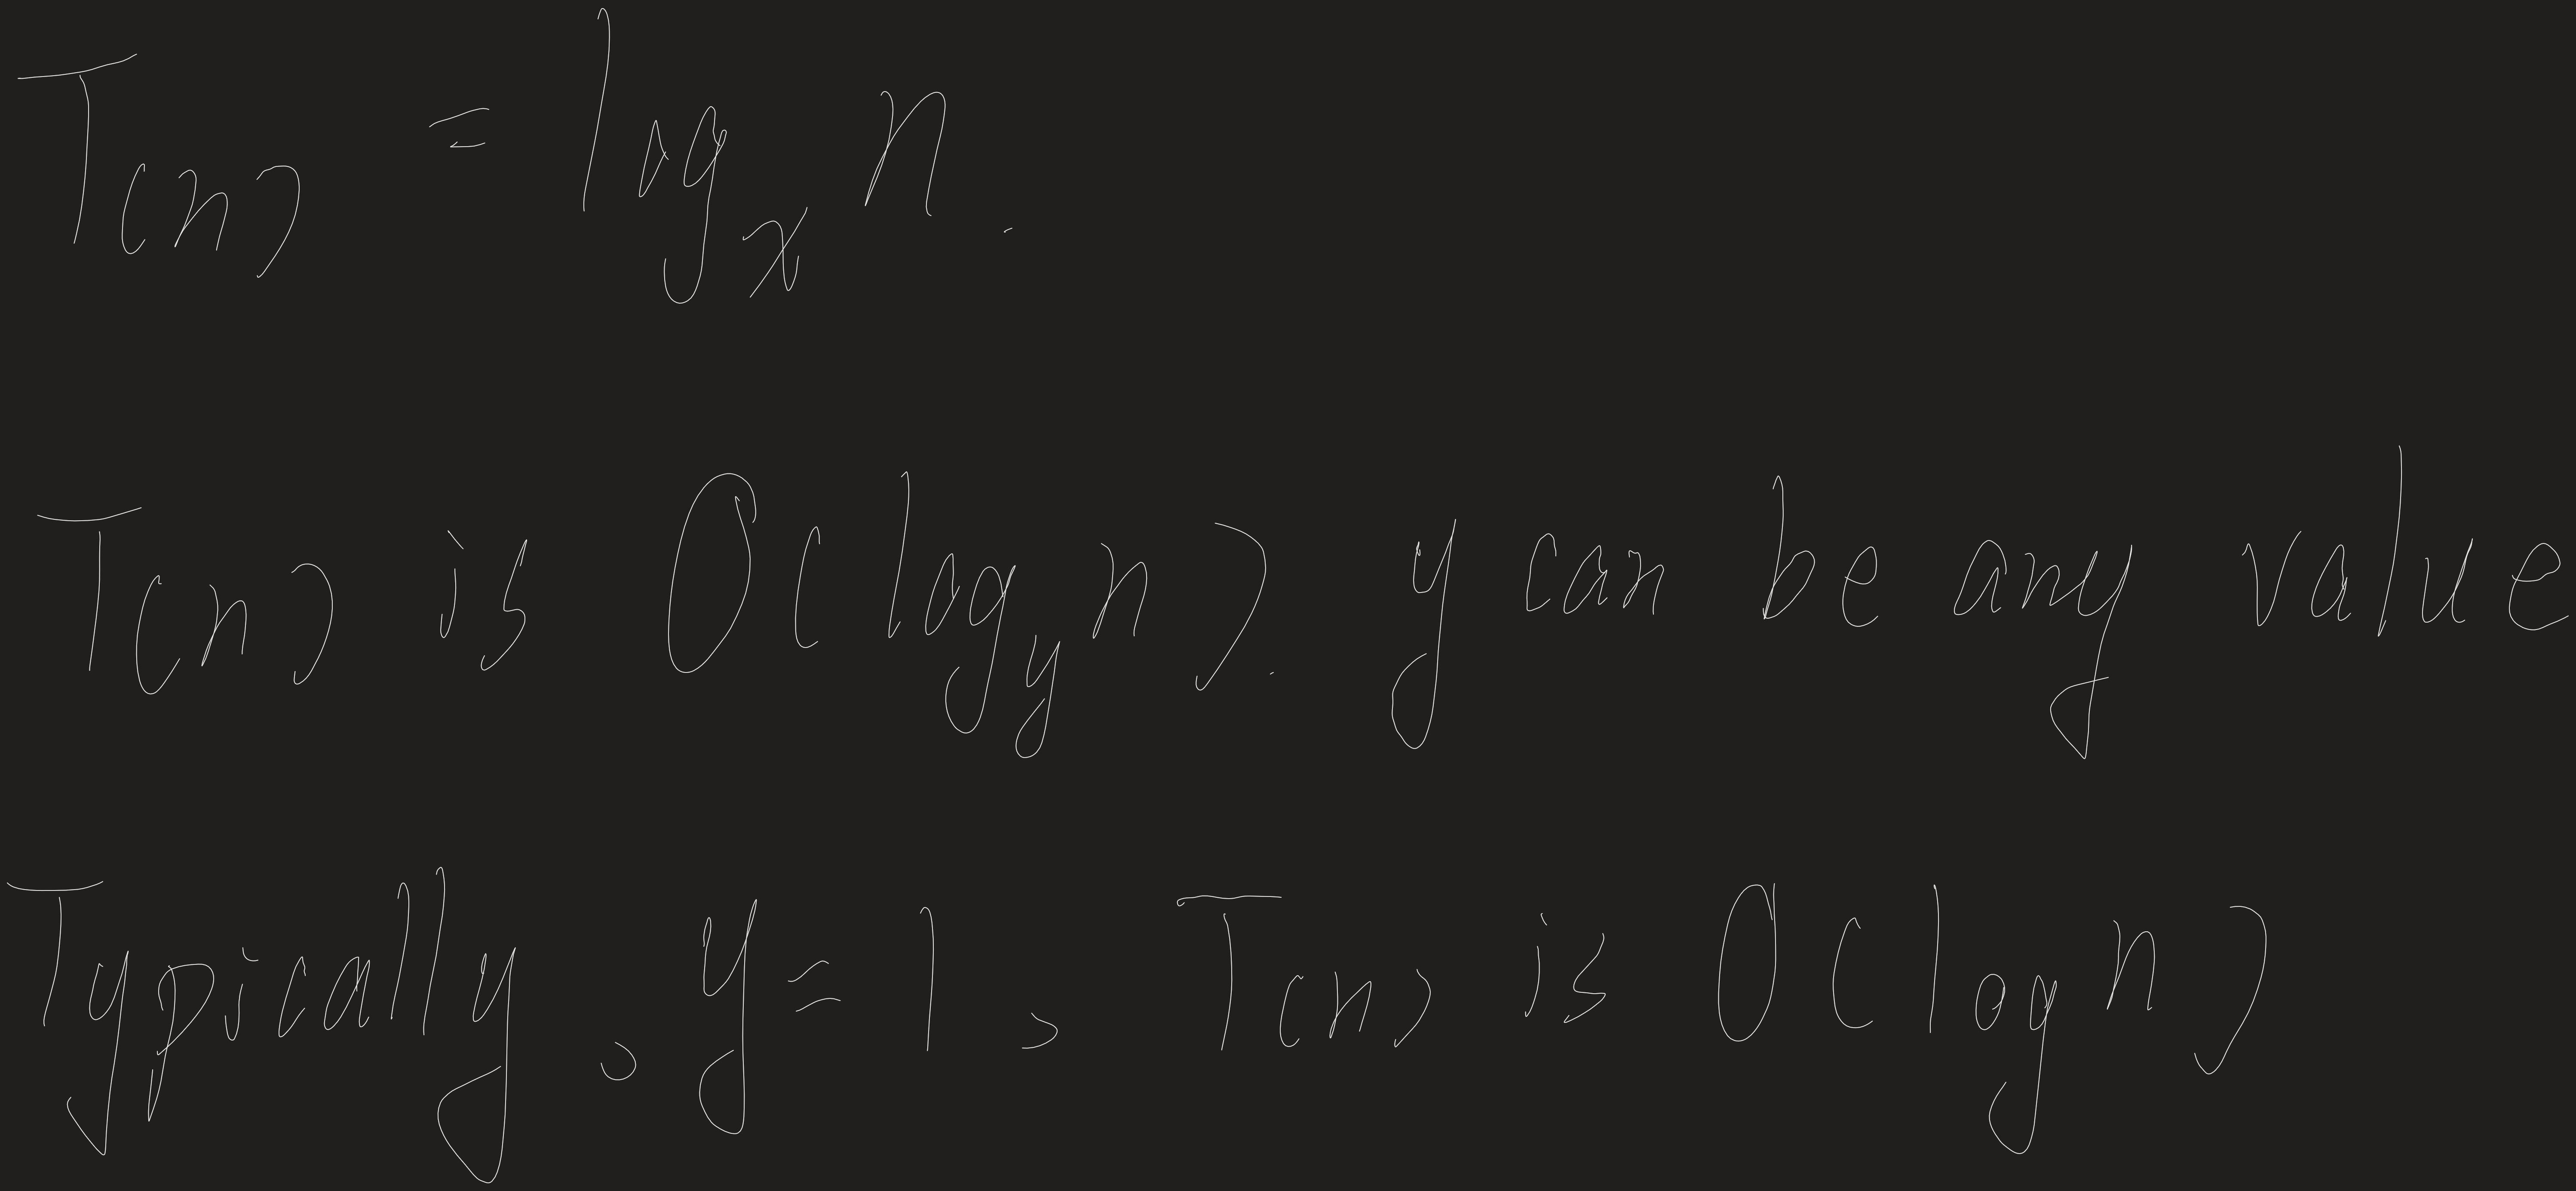 T(n) = log_x n.
T(n) is O(log_y n). y can be any value
Typically, y=1, T(n) is O(log n)